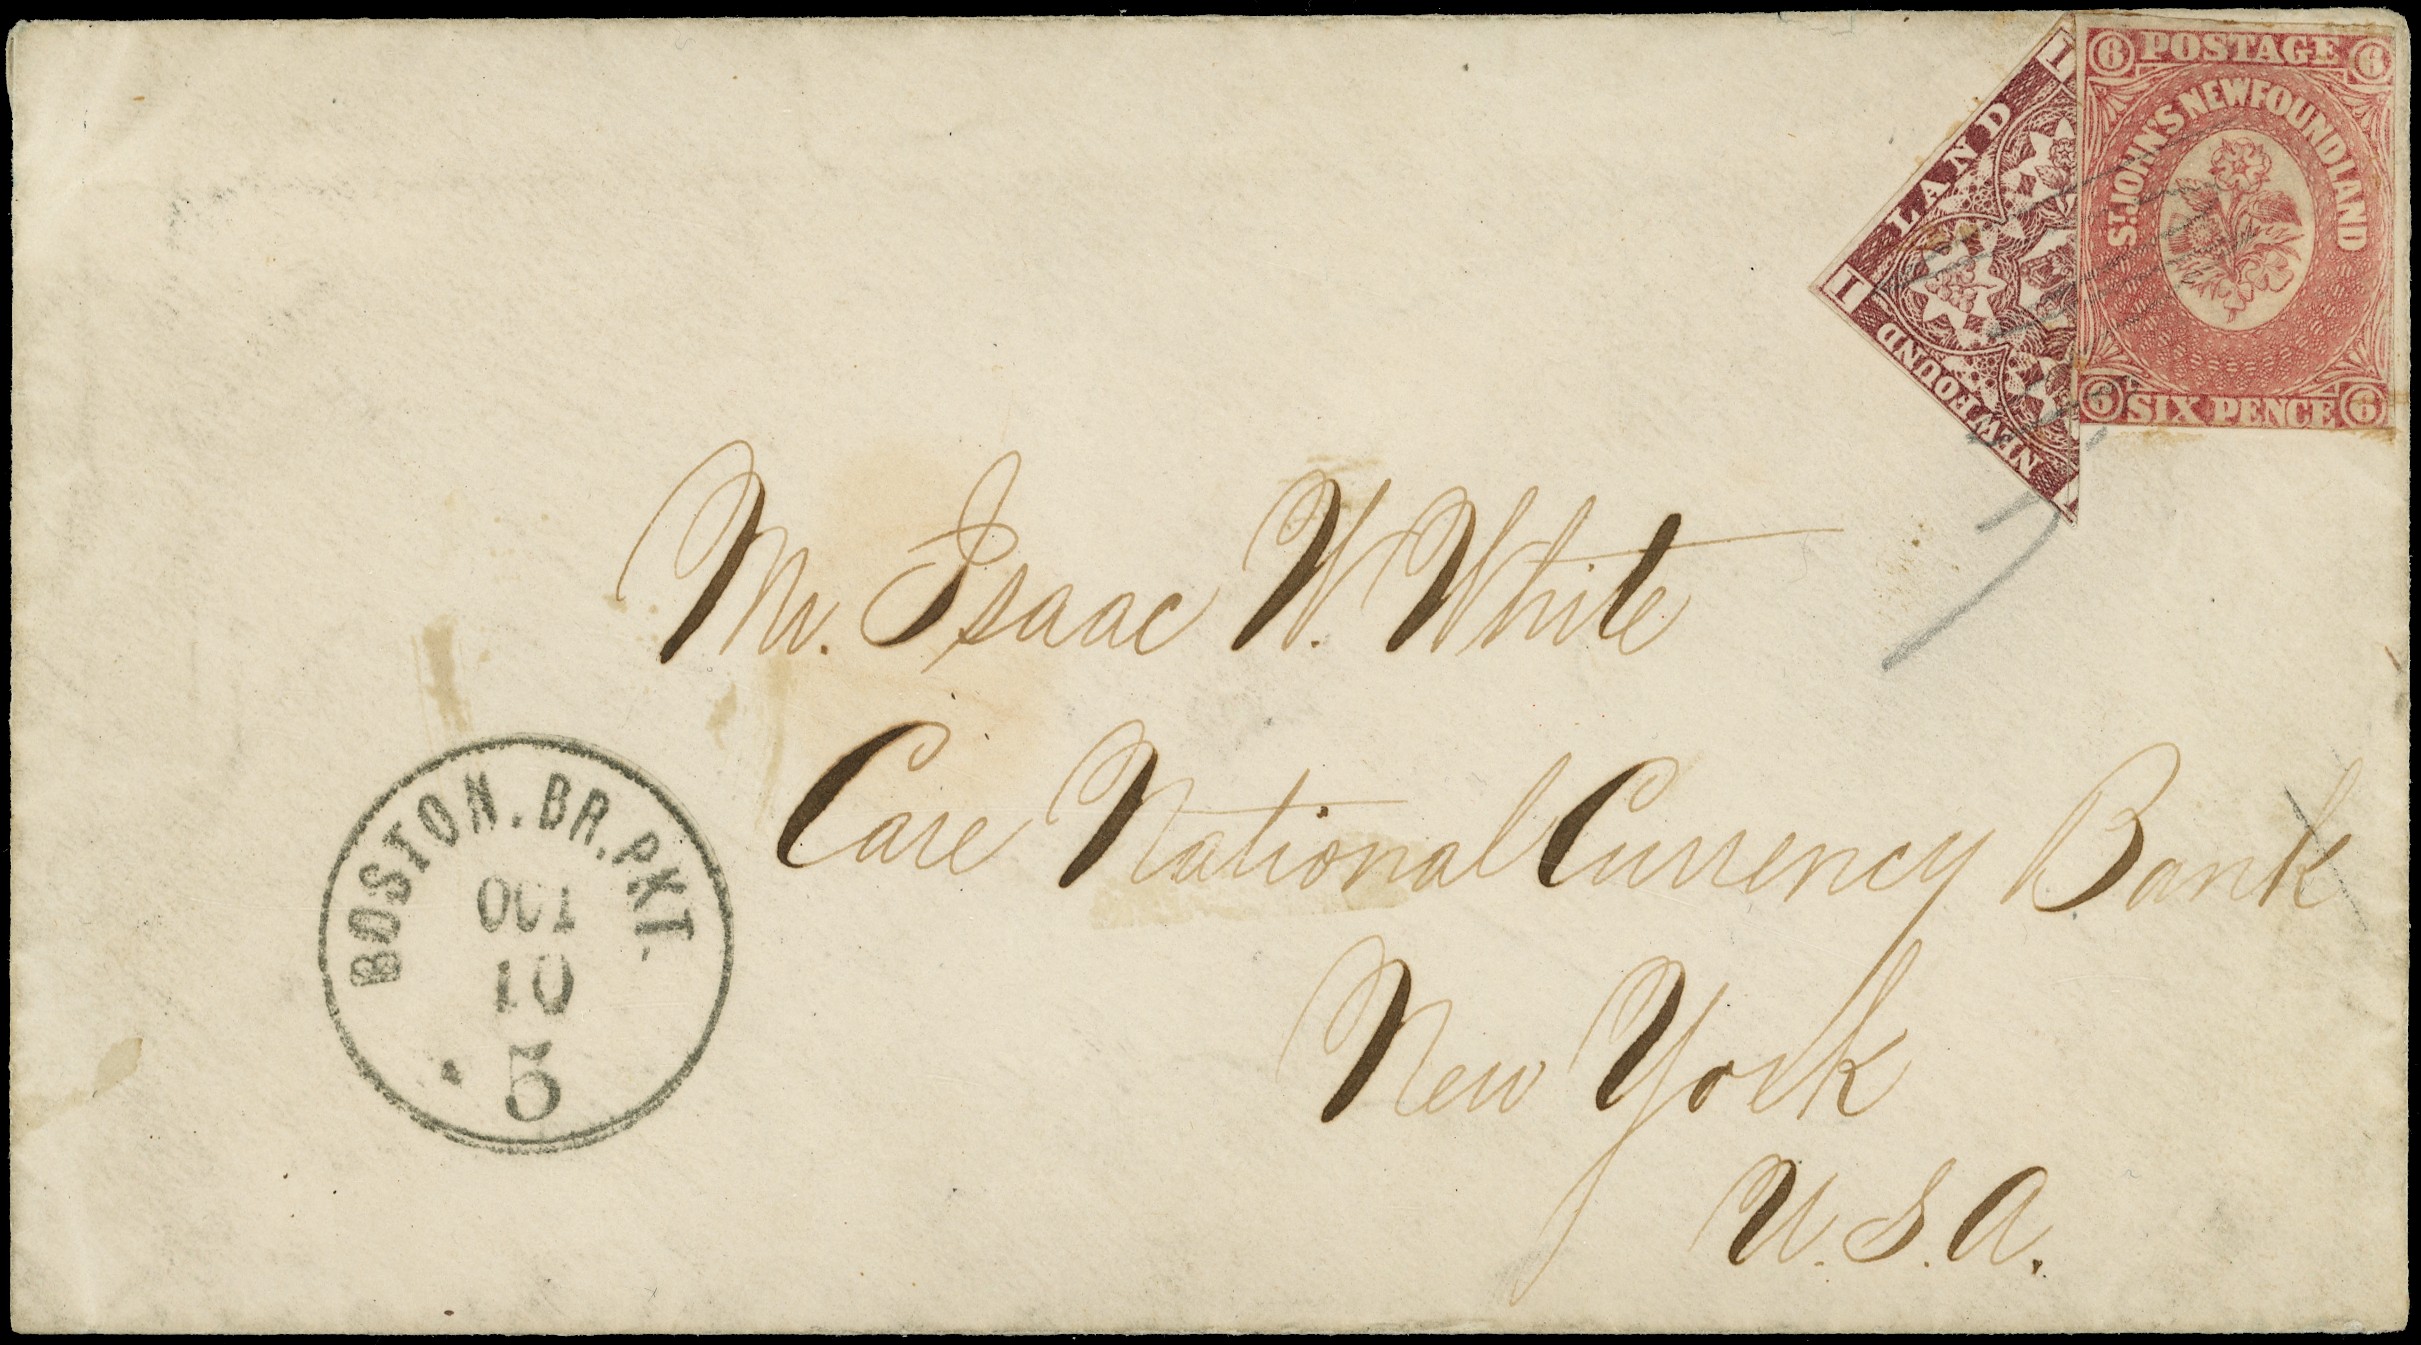 6 POSTAGE 6
ST. JOHN'S NEWFOUNDLAND
6 SIX PENCE 6
1 LAND 1
NEWFOUND
Mr. Isaac W. White
Care National Currency Bank
New York
U.S.A.
BOSTON. BR. PKT.
OCT
10
5